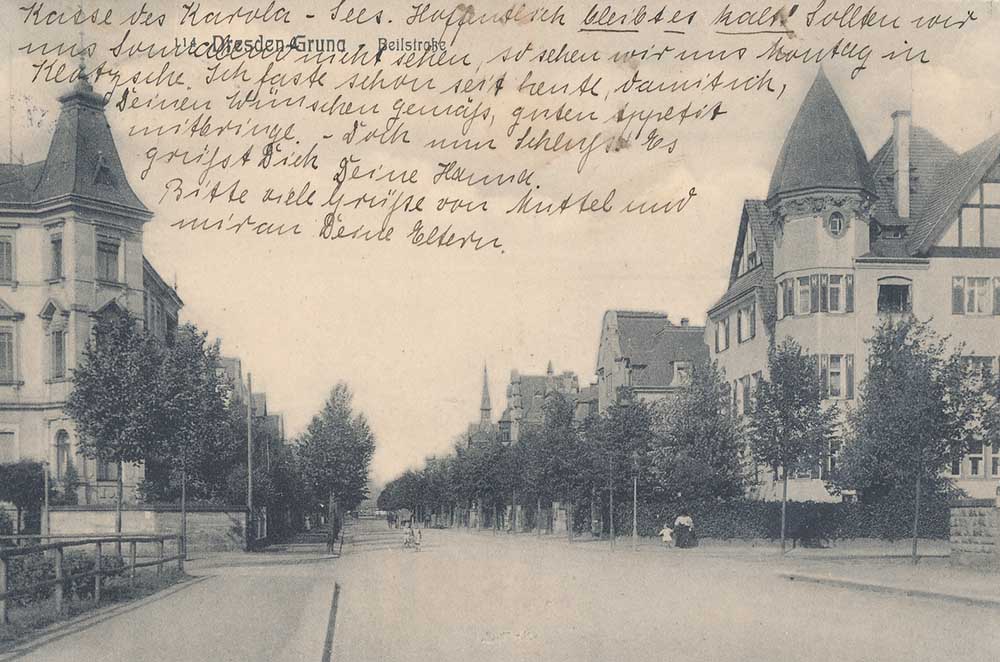 Kasse des Karola-Sees. Hoffentlich bleibt es kalt! Sollten wir
114 Dresden-Gruna Beilstraße
uns Sonnabend nicht sehen, so sehen wir uns Montag in
Klotzsche. Ich faste schon seit heute, damit ich,
Deinen Wünschen gemäß, guten Appetit
mitbringe. - Doch nun Schluß! Es
grüßt Dich Deine Hanna.
Bitte viele Grüße von Muttel und
mir an Deine Eltern.